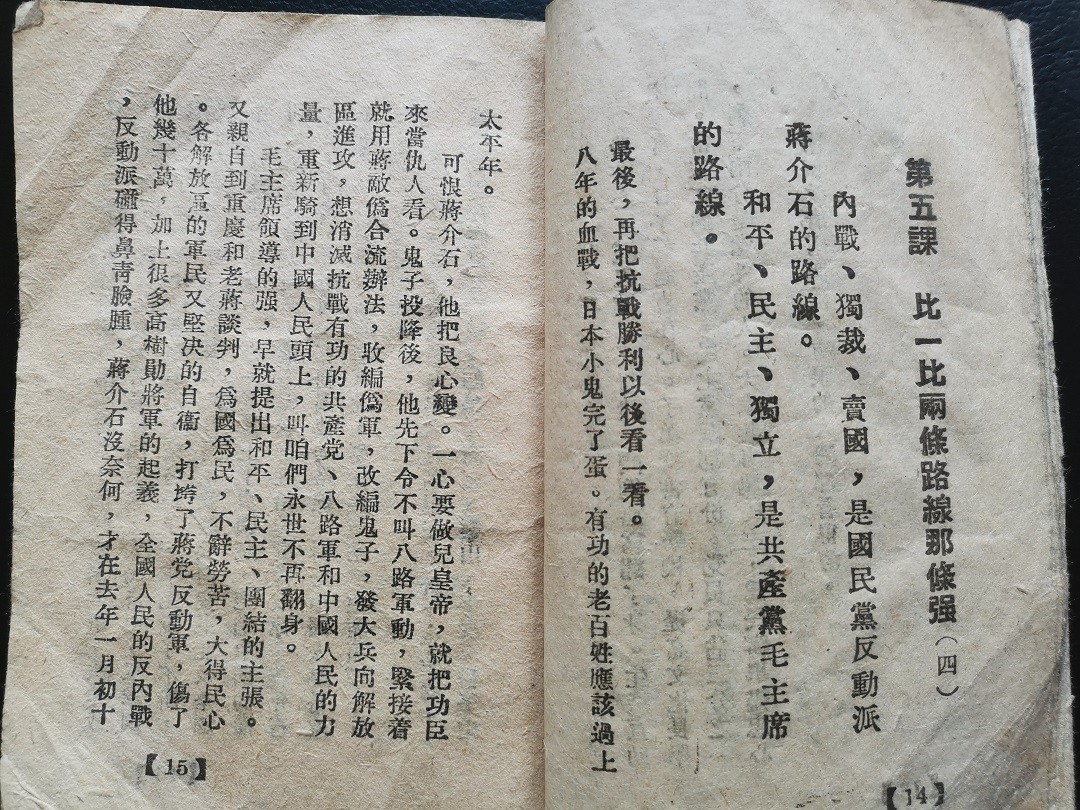 第五課 比一比兩條路線那條强(四)
內戰、獨裁、賣國,是國民黨反動派
蔣介石的路線。
和平、民主、獨立,是共產黨毛主席
的路線。
最後,再把抗戰勝利以後看一看。
八年的血戰,日本小鬼完了蛋。有功的老百姓應該過上
【14】
太平年。
可恨蔣介石,他把良心變。一心要做兒皇帝,就把功臣
來當仇人看。鬼子投降後,他先下令不叫八路軍動,緊接着
就用蔣敵僞合流辦法,收編僞軍,改編鬼子,發大兵向解放
區進攻,想消滅抗戰有功的共產党、八路軍和中國人民的力
量,重新騎到中國人民頭上,叫咱們永世不再翻身。
毛主席領導的强,早就提出和平、民主、團結的主張。
又親自到重慶和老蔣談判,爲國爲民,不辭勞苦,大得民心
。各解放區的軍民又堅决的自衞,打垮了蔣党反動軍,傷了
他幾十萬,加上很多高樹勛將軍的起義,全國人民的反內戰
,反動派碰得鼻靑臉腫,蔣介石沒奈何,才在去年一月初十
【15】